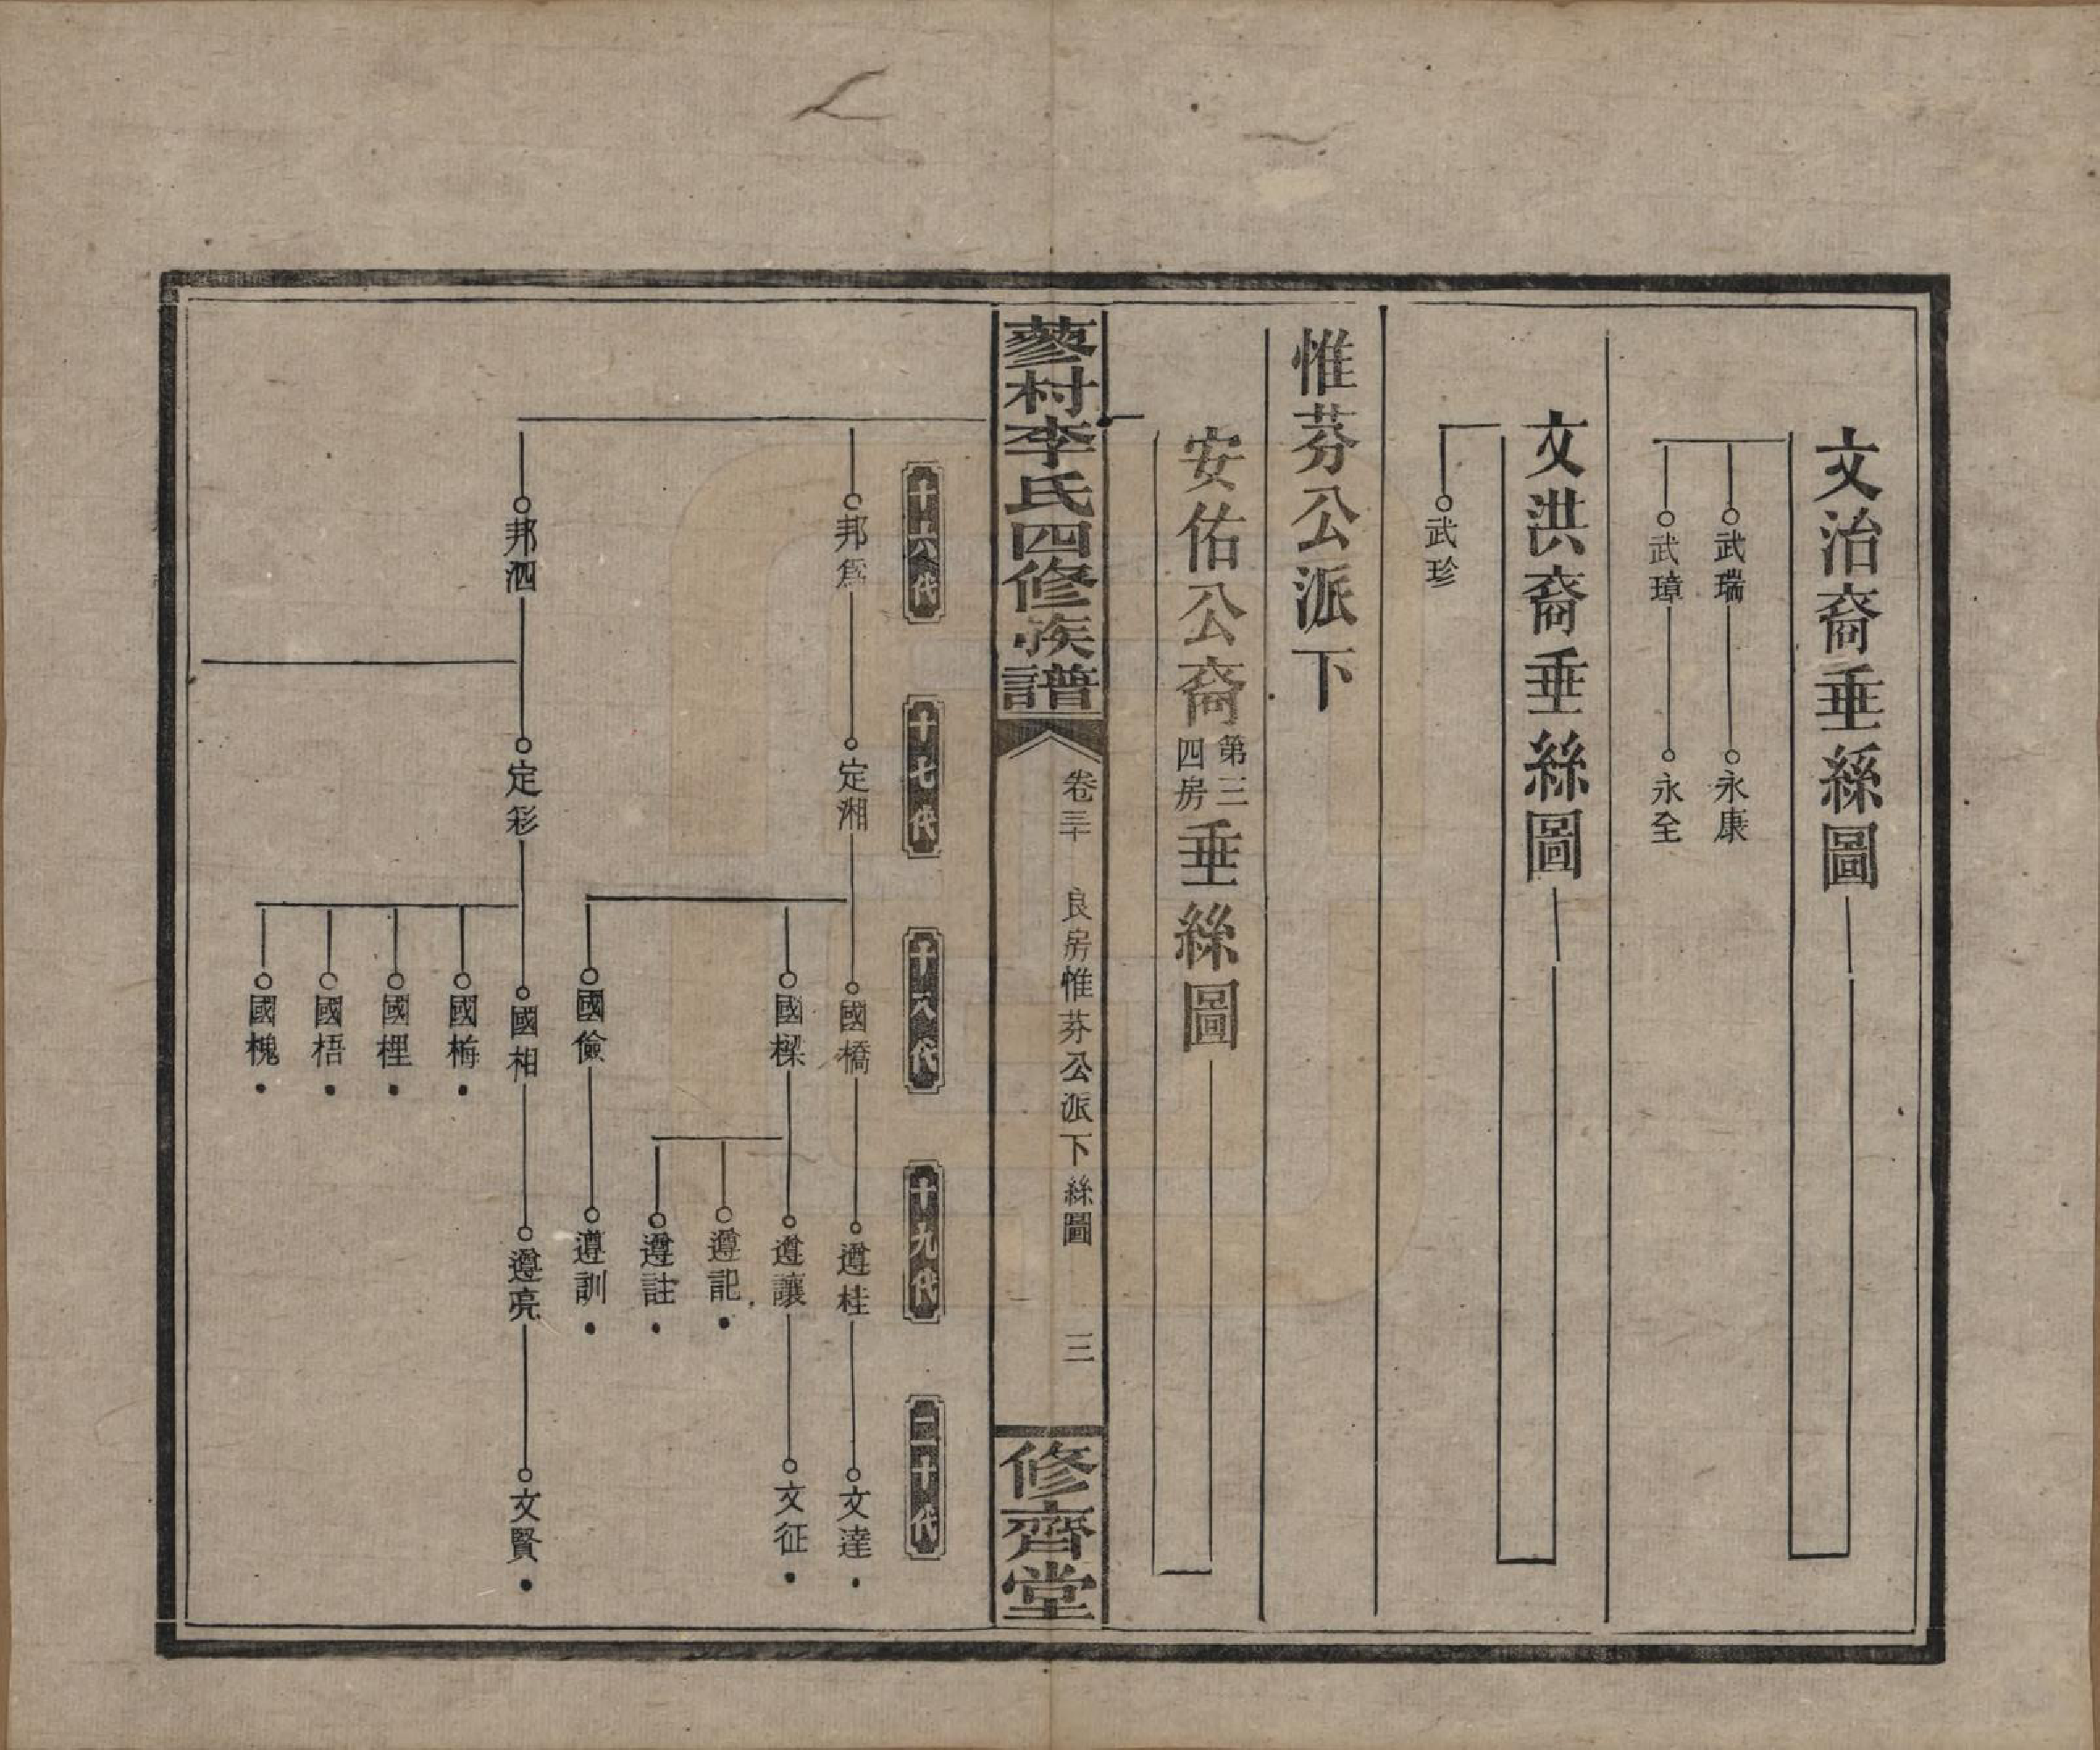 文治裔垂絲圖
武瑞
永康
武璋
永全
文洪裔垂絲圖
武珍
惟芬公派下
安佑公裔第三四房垂絲圖
蓼村李氏四修族譜
卷三十
良房惟芬公派下絲圖
三
修齊堂
十六代
十七代
十八代
十九代
二十代
邦爲
定湘
國橋
遵桂
文達
國樑
遵讓
文征
遵記
遵註
國儉
遵訓
邦泗
定彩
國相
遵亮
文賢
國梅
國梩
國梧
國槐